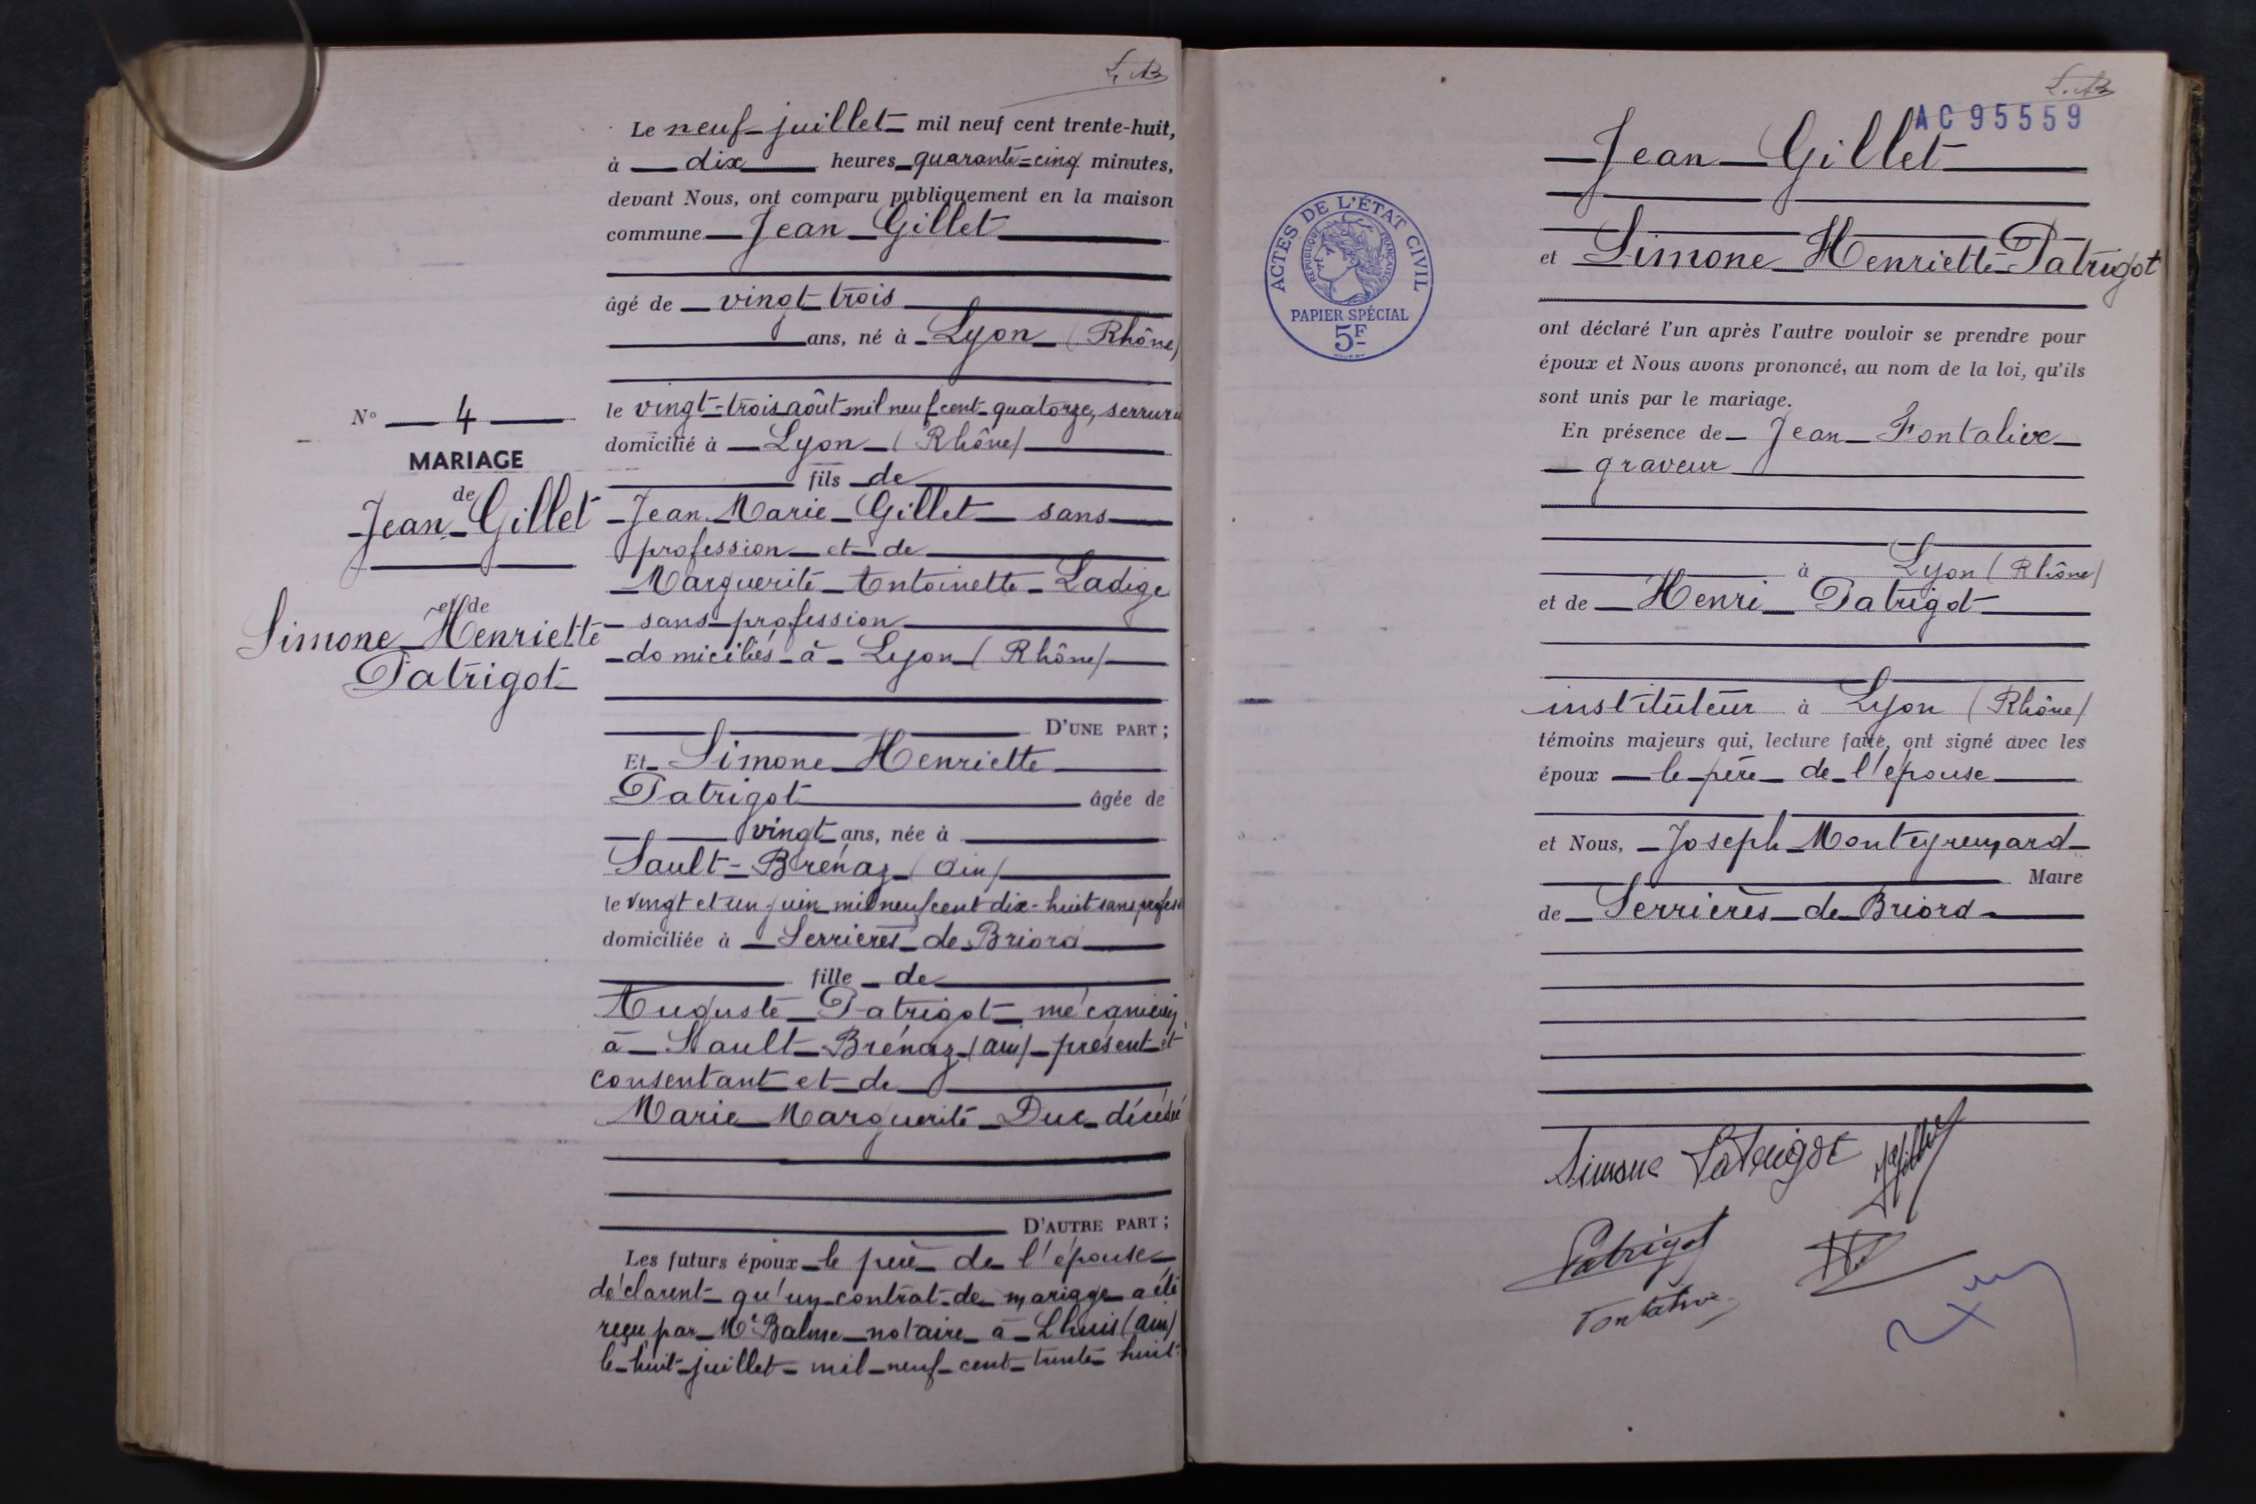 L. B
Le neuf juillet mil neuf cent trente-huit,
à dix heures quarante-cinq minutes,
devant Nous, ont comparu publiquement en la maison
commune Jean Gillet
âgé de vingt trois
ans, né à Lyon (Rhône)
le vingt-trois août mil neuf cent quatorze, serrurier
domicilié à Lyon (Rhône)
fils de
Jean Marie Gillet sans
profession et de
Marguerite Antoinette Ladige
sans profession
domiciliés à Lyon (Rhône)
D'UNE PART ;
Et Simone Henriette
Patrigot âgée de
vingt ans, née à
Sault-Brénaz (Ain)
le vingt et un juin mil neuf cent dix-huit sans profess
domiciliée à Serrières de Briord
fille de
Auguste Patrigot mécanicien
à Sault-Brénaz (Ain) présent et
consentant et de
Marie Marguerite Duc décédée
D'AUTRE PART ;
Les futurs époux le père de l'épouse
déclarent qu'un contrat de mariage a été
reçu par Me Balme notaire à Lhuis (Ain)
le huit juillet mil neuf cent trente huit
N° 4
MARIAGE
de
Jean Gillet
et de
Simone Henriette
Patrigot
L. B
AC 95559
Jean Gillet
et Simone Henriette Patrigot
ont déclaré l'un après l'autre vouloir se prendre pour
époux et Nous avons prononcé, au nom de la loi, qu'ils
sont unis par le mariage.
En présence de Jean Fontalive
graveur
à Lyon (Rhône)
et de Henri Patrigot
instituteur à Lyon (Rhône)
témoins majeurs qui, lecture faite, ont signé avec les
époux le père de l'épouse
et Nous, Joseph Monteyremard
Maire
de Serrières de Briord
Simone Patrigot
JGillet
Patrigot
Fontalive
ACTES DE L'ÉTAT CIVIL
RÉPUBLIQUE FRANÇAISE
PAPIER SPÉCIAL
5F